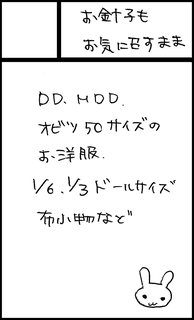 お針子も
お気に召すまま
DD. MDD.
オビツ50サイズの
お洋服.
1/6.1/3ドールサイズ
布小物など